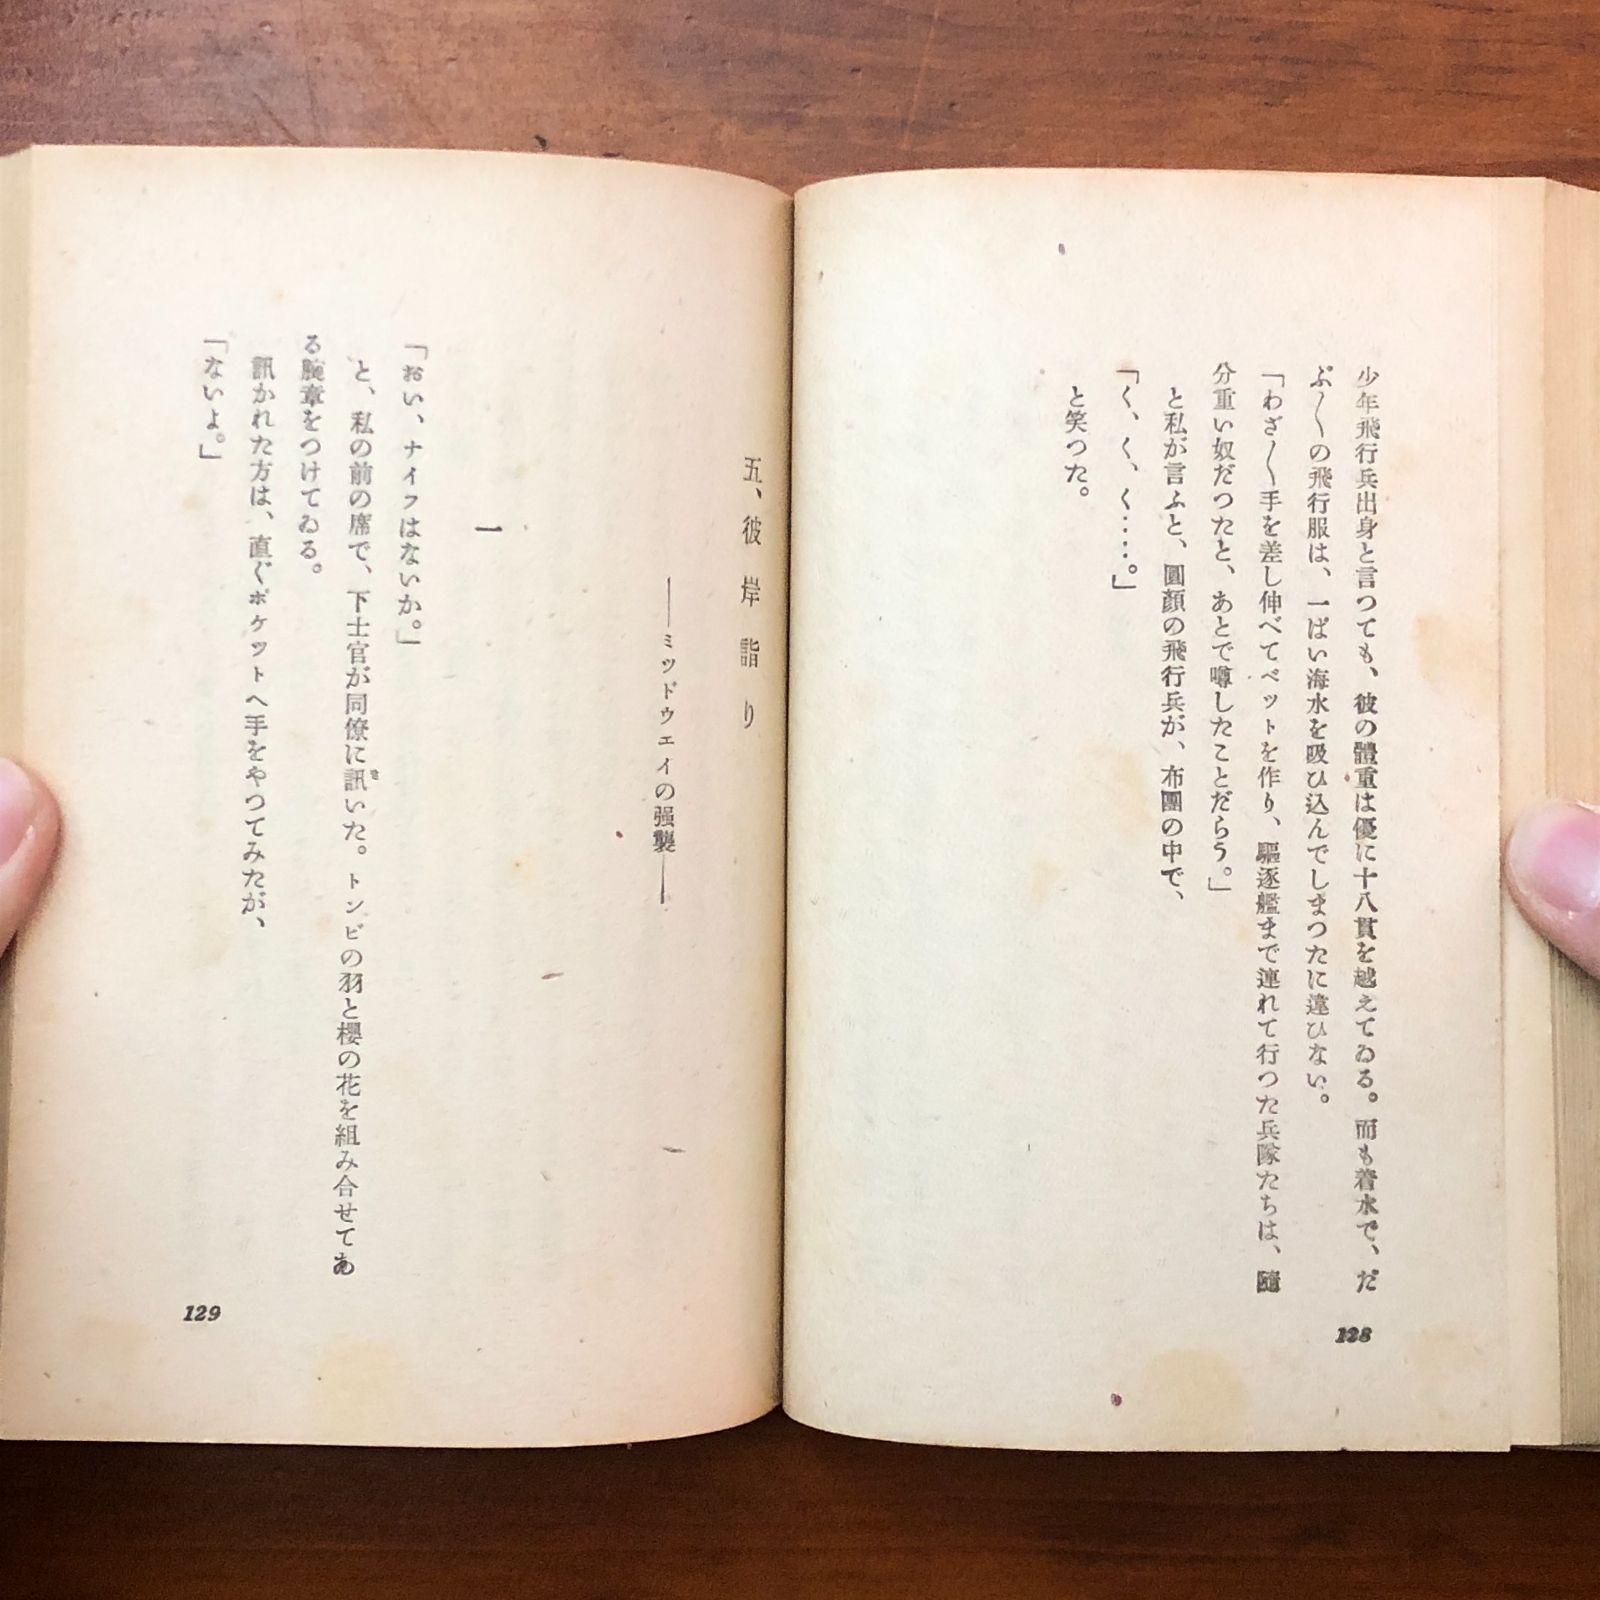 少年飛行兵出身と言つても、彼の體重は優に十八貫を越えてゐる。而も着水で、だ
ぶ〳〵の飛行服は、一ぱい海水を吸ひ込んでしまつたに違ひない。
「わざ〳〵手を差し伸べてベットを作り、驅逐艦まで連れて行つた兵隊たちは、隨
分重い奴だつたと、あとで噂したことだらう。」
と私が言ふと、圓顏の飛行兵が、布團の中で、
「く、く、く‥‥。」
と笑つた。
128
五、彼岸詣り
――ミツドウェイの强襲――
一
「おい、ナイフはないか。」
と、私の前の席で、下士官が同僚に訊いた。トンビの羽と櫻の花を組み合せてあ
る腕章をつけてゐる。
訊かれた方は、直ぐポケットへ手をやつてみたが、
「ないよ。」
129